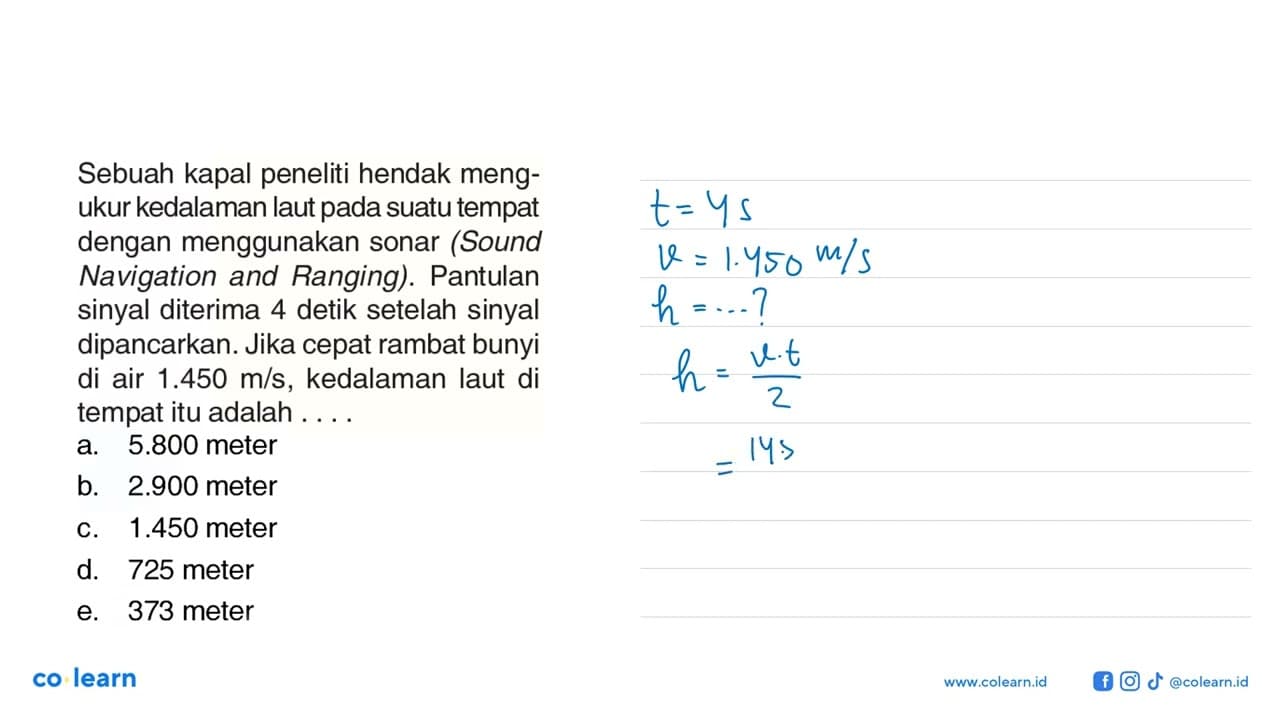 Sebuah kapal peneliti hendak meng-
ukur kedalaman laut pada suatu tempat
dengan menggunakan sonar (Sound
Navigation and Ranging). Pantulan
sinyal diterima 4 detik setelah sinyal
dipancarkan. Jika cepat rambat bunyi
di air 1.450 m/s, kedalaman laut di
tempat itu adalah . . . .
a. 5.800 meter
b. 2.900 meter
c. 1.450 meter
d. 725 meter
e. 373 meter
t = 4 s
v = 1.450 m/s
h = ...?
h = v.t
2
= 145
co learn
www.colearn.id
@colearn.id